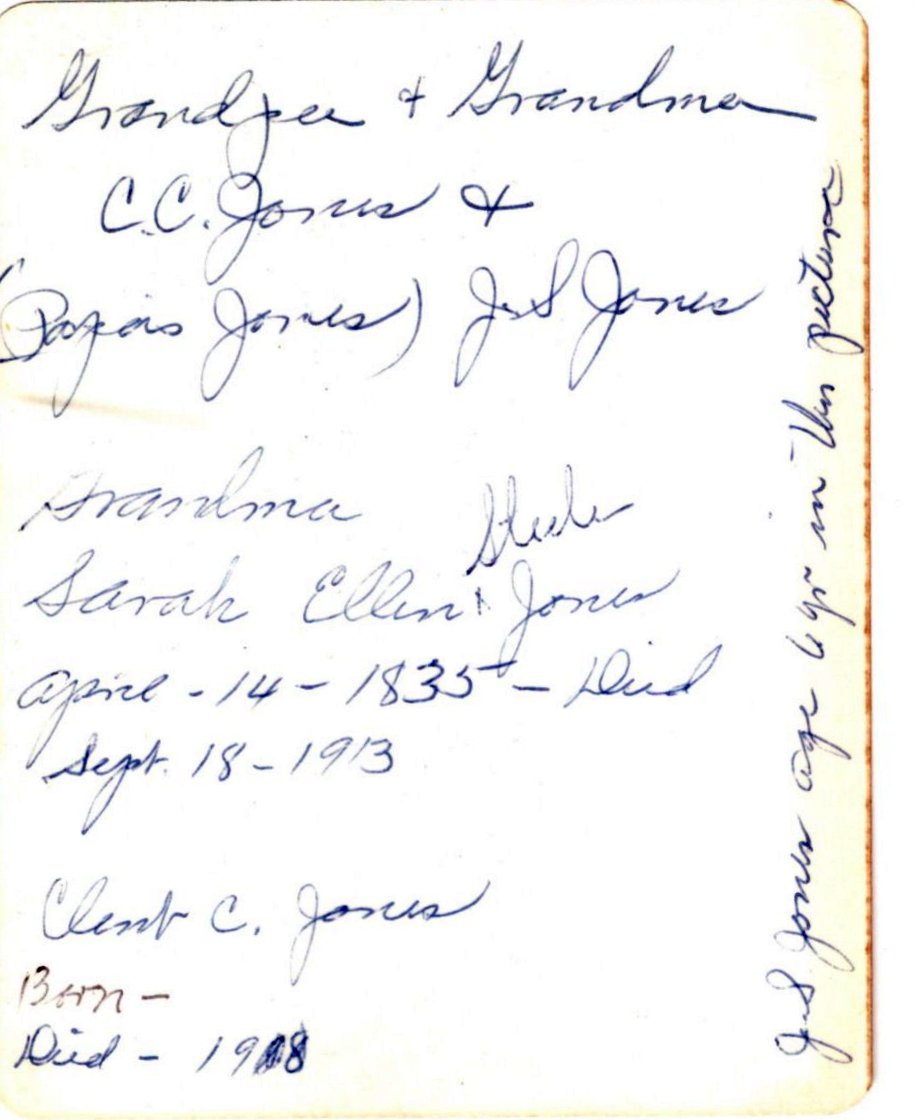 Grandpa + Grandma
C.C. Jones &
(Papas Jones) J.S Jones
Grandma
Sarah Ellen Jones
April - 14 - 1835 - Died
Sept. 18 - 1913
Clent C. Jones
Born -
Died - 1918
J.S. Jones age 6 yr in this picture